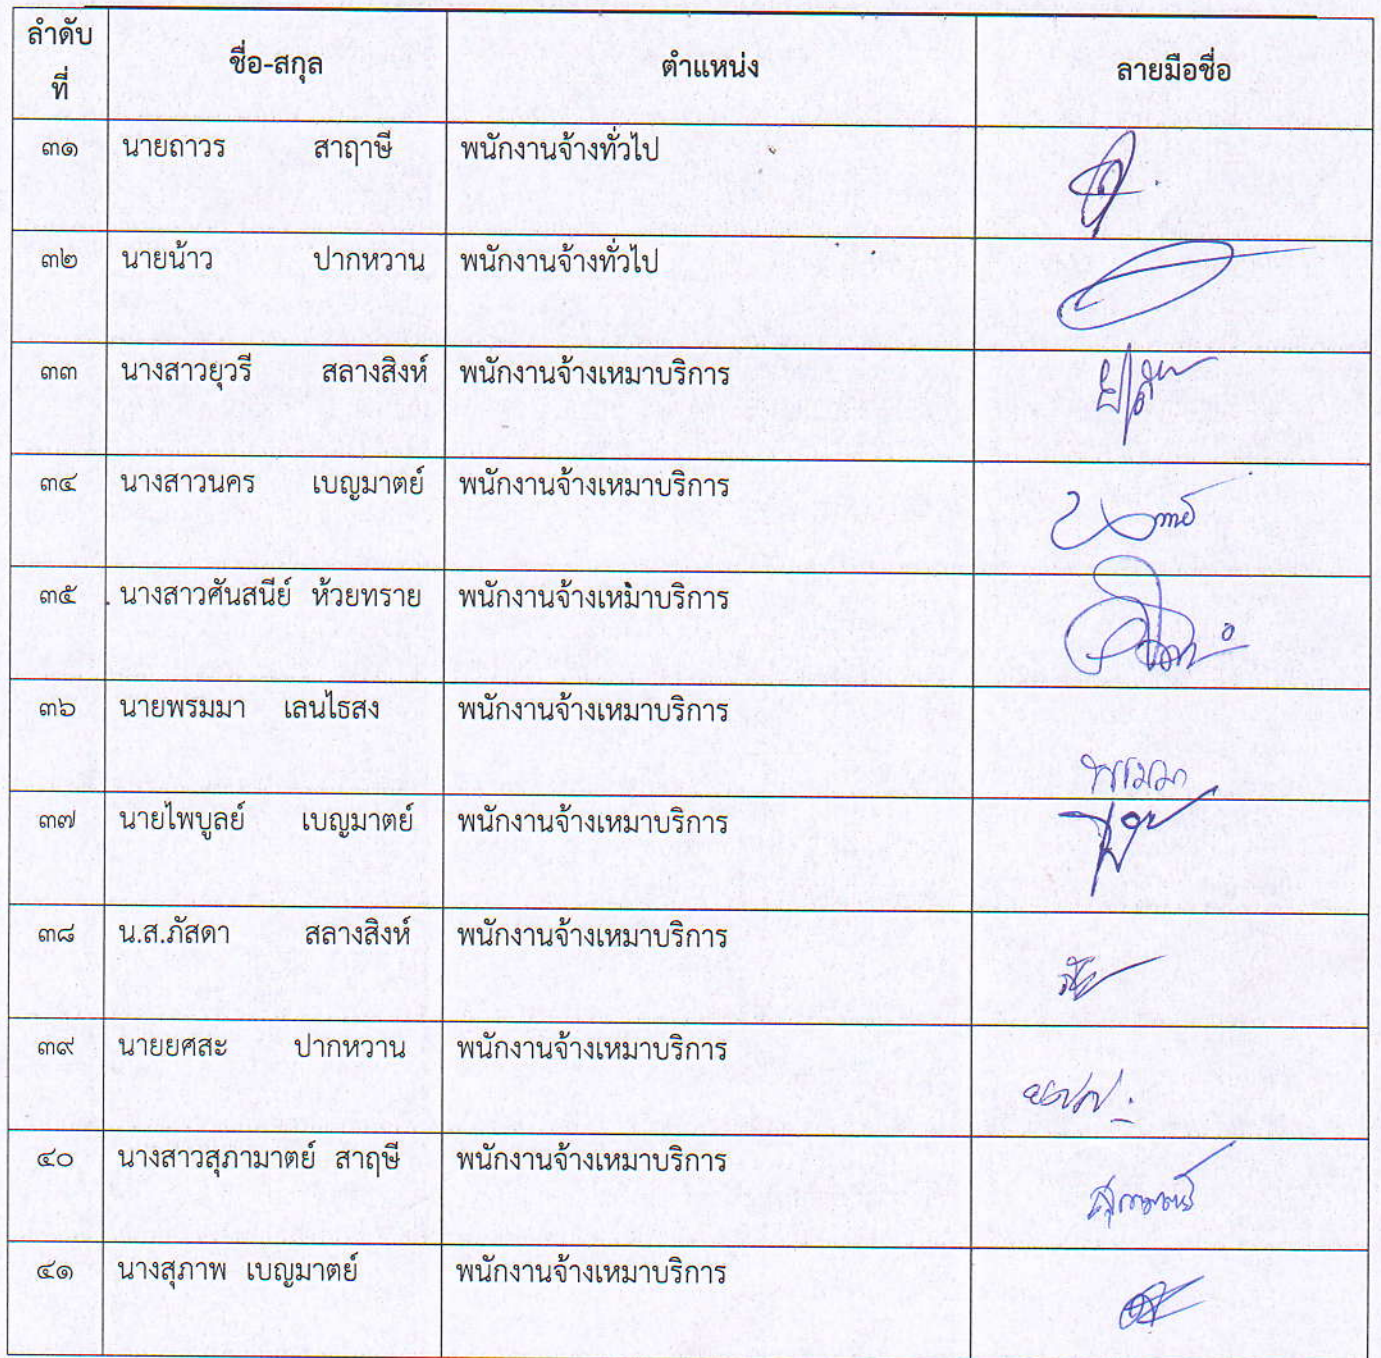 ลำดับที่ ชื่อ-สกุล ตำแหน่ง ลายมือชื่อ
๓๑ นายถาวร สาฤาษี พนักงานจ้างทั่วไป
๓๒ นายน้าว ปากหวาน พนักงานจ้างทั่วไป
๓๓ นางสาวยุวรี สลางสิงห์ พนักงานจ้างเหมาบริการ
๓๔ นางสาวนคร เบญมาตย์ พนักงานจ้างเหมาบริการ
๓๕ นางสาวศันสนีย์ ห้วยทราย พนักงานจ้างเหมาบริการ
๓๖ นายพรมมา เลนไธสง พนักงานจ้างเหมาบริการ พรมมา
๓๗ นายไพบูลย์ เบญมาตย์ พนักงานจ้างเหมาบริการ
๓๘ น.ส.ภัสดา สลางสิงห์ พนักงานจ้างเหมาบริการ
๓๙ นายยศสะ ปากหวาน พนักงานจ้างเหมาบริการ
๔๐ นางสาวสุภามาตย์ สาฤษี พนักงานจ้างเหมาบริการ
๔๑ นางสุภาพ เบญมาตย์ พนักงานจ้างเหมาบริการ